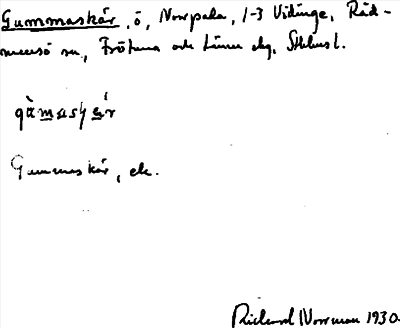 Gummaskär, ö, Norrpada, 1-3 Vidinge, Råd-
mansö sn, Frötuna och Länna skg, Sthlms l.
gàmasʃ
Gummeskär, ek.
Rickard Norrman 1930.